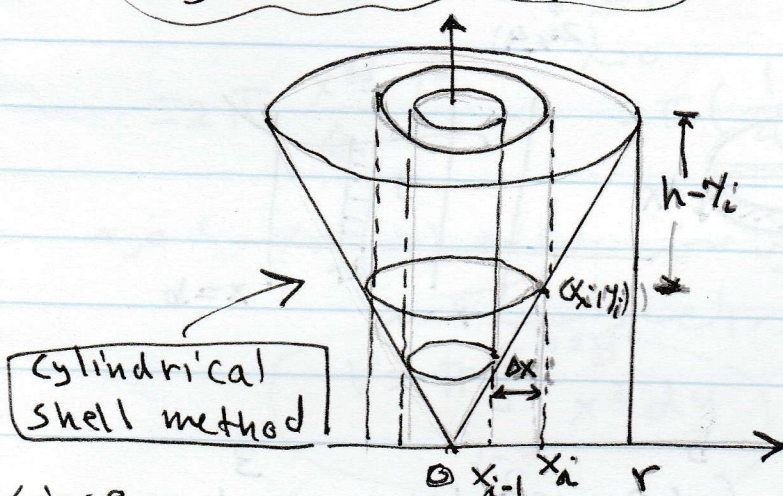 h-yᵢ
(xᵢ, yᵢ)
Cylindrical
shell method
Δx
0 xᵢ₋₁ xᵢ r